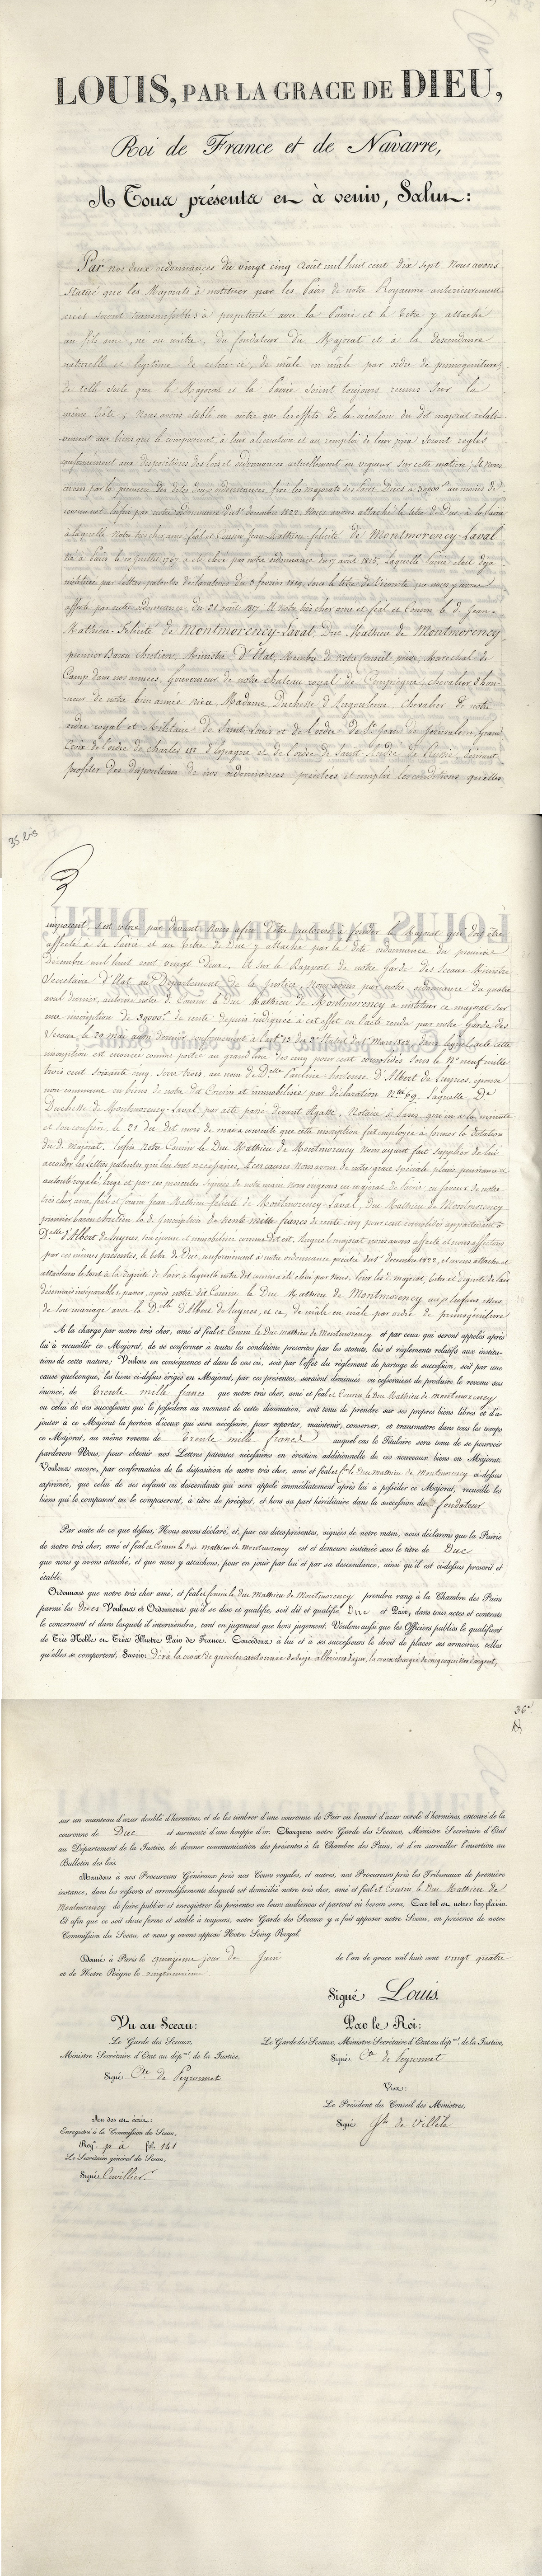 LOUIS, PAR LA GRACE DE DIEU,
Roi de France et de Navarre,
A Tous présents et à venir, Salut:
Par nos deux ordonnances du vingt cinq Août mil huit cent dix sept Nous avons
statué que les Majorats à instituer par les Pairs de notre Royaume antérieurement
créés seront transmissibles à perpétuité avec la Pairie et le titre y attaché
au fils aîné, né ou naitre, du fondateur du Majorat et à la descendance
naturelle et légitime de celui-ci, de mâle en mâle par ordre de primogéniture
de telle sorte que le Majorat et la Pairie soient toujours réunis sur la
même tête; Nous avons établi en outre que les effets de la création du dit majorat relati-
vement aux biens qui le composeront, à leur aliénation et au remploi de leur prix seront réglés
conformément aux dispositions des lois et ordonnances actuellement en vigueur sur cette matière; et nous
avons, par la première des dites deux ordonnances, fixé les majorats des Pairs Ducs à 30,000f au moins de
revenu net. Enfin par notre ordonnance du 1er décembre 1822. Nous avons attaché le titre de Duc à la Pairie
à laquelle notre très cher, amé et féal et Cousin Jean-Mathieu-félicité de Montmorency-Laval
né à Paris le 10 Juillet 1767 a été élevé par notre ordonnance du 17 août 1815, laquelle Pairie était déjà
instituée par lettres-patentes déclaratives du 3 février 1819, sous le titre de Vicomte que nous y avons
affecté par autre ordonnance du 31 août 1817. Et notre très cher amé et féal et Cousin le d. Jean-
Mathieu-Félicité de Montmorency-Laval, Duc Mathieu de Montmorency,
premier Baron chrétien, Ministre d'Etat, Membre de notre Conseil privé, Maréchal de
Camp dans nos armées, Gouverneur de notre chateau royal de Compiègne, chevalier d'hon-
neur de notre bien amée nièce, Madame, Duchesse d'Angoulême, Chevalier de notre
ordre royal et Militaire de Saint-Louis et de l'ordre de St. Jean de Jérusalem, Grand
Croix de l'ordre de Charles III d'Espagne et de l'ordre de Saint-André de Russie, désirant
profiter des dispositions de nos ordonnances précitées et remplir les conditions qu'elles
35 bis
imposent, s'est retiré par devant Nous afin d'être autorisé à fonder le Majorat qui doit être
affecté à sa Pairie et au titre de Duc y attaché par la dite ordonnance du premier
décembre mil huit cent vingt deux. Et sur le Rapport de notre Garde des Sceaux Ministre
Secrétaire d'Etat au Département de la Justice, Nous avons par notre ordonnance du quatre
avril dernier, autorisé notre d. Cousin le Duc Mathieu de Montmorency à instituer ce majorat sur
une inscription de 30,000f. de rente depuis indiquée à cet effet en l'acte rendu par notre Garde des
Sceaux, le 20 mai
inscription est énoncée comme portée au grand livre des cinq pour cent consolidés sous le No. neuf mille
trois cent soixante cinq, Série trois, au nom de Delle. Pauline hortense d'Albert de Luynes, épouse
non commune en biens de notre dit Cousin et immobilisée par déclaration No. 69. Laquelle De.
Duchesse de Montmorency-Laval, par acte passé devant Notaire à Paris, qui en a la minute
et son confrère, le 21 du dit mois de mars a consenti que cette inscription fut employée à former la dotation
du d. majorat. Enfin Notre Cousin le Duc Mathieu de Montmorency Nous ayant fait supplier de lui
accorder les lettres patentes qui lui sont nécessaires, A ces causes Nous avons de notre grâce spéciale, pleine puissance et
autorité royale, érigé et par ces présentes signées de notre main, Nous érigeons en majorat de Pairie, en faveur de notre
très cher, amé, féal et Cousin Jean-Mathieu-félicité de Montmorency-Laval, duc Mathieu de Montmorency
premier baron chrétien la d. Inscription de trente mille francs de rente cinq pour cent consolidés appartenant à
Delle. d'Albert de Luynes, son épouse et immobilisée comme dit est. Auquel majorat nous avons affecté et nous affectons
par ces mêmes présentes, le titre de Duc, conformément à notre ordonnance précitée du 1er décembre 1822, et avons attaché et
attachons le tout à la dignité de Pair à laquelle notre dit cousin a été élevé par Nous. Pour les d. majorat, titre et dignité de Pair
désormais inséparables, passer, après notre dit Cousin le Duc Mathieu de Montmorency aux Enfans, issus
de son mariage avec la Delle. d'Albert de Luynes, et ce, de mâle en mâle par ordre de primogéniture
A la charge par notre très cher, amé et féal et Cousin le Duc Mathieu de Montmorency et par ceux qui seront appelés après
lui à recueillir ce Majorat, de se conformer à toutes les conditions prescrites par les statuts, lois et règlements relatifs aux institu-
tions de cette nature; Voulons en conséquence et dans le cas où, soit par l'effet du règlement de partage de succession, soit par une
cause quelconque, les biens ci-dessus érigés en Majorat, par ces présentes, seraient diminués ou cesseraient de produire le revenu sus
énoncé, de trente mille francs que notre très cher, amé et féal et Cousin le Duc Mathieu de Montmorency
ou celui de ses successeurs qui le possédera au moment de cette diminution, soit tenu de prendre sur ses propres biens libres et d'a-
jouter à ce Majorat la portion d'iceux qui sera nécessaire, pour reporter, maintenir, conserver, et transmettre dans tous les temps
ce Majorat, au même revenu de trente mille francs auquel cas le Titulaire sera tenu de se pourvoir
pardevers Nous, pour obtenir nos Lettres patentes nécessaires en érection additionnelle de ces nouveaux biens en Majorat.
Voulons encore, par confirmation de la disposition de notre très cher, amé et féal Cousin le Duc Mathieu de Montmorency ci-dessus
exprimée, que celui de ses enfans ou descendants qui sera appelé immédiatement après lui à posséder ce Majorat, recueille les
biens qui le composent ou le composeront, à titre de préciput, et hors sa part héréditaire dans la succession du fondateur
Par suite de ce que dessus, Nous avons déclaré, et, par ces dites présentes, signées de notre main, nous déclarons que la Pairie
de notre très cher, amé et féal et Cousin le Duc Mathieu de Montmorency est et demeure instituée sous le titre de Duc
que nous y avons attaché, et que nous y attachons, pour en jouir par lui et par sa descendance, ainsi qu'il est ci-dessus prescrit et
établi.
Ordonnons que notre très cher amé, et féal et Cousin le Duc Mathieu de Montmorency prendra rang à la Chambre des Pairs
parmi les Ducs Voulons et Ordonnons qu'il se dise et qualifie, soit dit et qualifié Duc et Pair, dans tous actes et contrats
le concernant et dans lesquels il interviendra, tant en jugement que hors jugement. Voulons aussi que les Officiers publics le qualifient
de Très Noble et Très Illustre Pair de France. Concédons à lui et à ses successeurs le droit de placer ses armoiries, telles
qu'elles se comportent, Savoir: d'or à la croix de gueules cantonnée de seize alérions d'azur, la croix chargée de cinq coquilles d'argent,
36
sur un manteau d'azur doublé d'hermines, et de les timbrer d'une couronne de Pair ou bonnet d'azur cerclé d'hermines, entouré de la
couronne de Duc et surmonté d'une houppe d'or. Chargeons notre Garde des Sceaux, Ministre Secrétaire d'Etat
au Département de la Justice, de donner communication des présentes à la Chambre des Pairs, et d'en surveiller l'insertion au
Bulletin des lois.
Mandons à nos Procureurs Généraux près nos Cours royales, et autres, nos Procureurs près les Tribunaux de première
instance, dans les ressorts et arrondissements desquels est domicilié notre très cher, amé et féal et Cousin le Duc Mathieu de
Montmorency de faire publier et enregistrer les présentes en leurs audiences et partout où besoin sera, Car tel est notre bon plaisir.
Et afin que ce soit chose ferme et stable à toujours, notre Garde des Sceaux y a fait apposer notre Sceau, en présence de notre
Commission du Sceau, et nous y avons apposé Notre Seing Royal.
Donné à Paris le quinzième jour de Juin de l'an de grace mil huit cent vingt quatre
et de Notre Règne le vingtneuvième
Signé Louis.
Vu au Sceau: Par le Roi:
Le Garde des Sceaux, Le Garde des Sceaux, Ministre Secrétaire d'Etat au dépmt. de la Justice,
Ministre Secrétaire d'Etat au dépmt. de la Justice, Signé Cte. de Peyronnet
Signé Cte. de Peyronnet
Vu:
Le Président du Conseil des Ministres,
Signé Jh. de Villèle
Au dos est écrit:
Enregistré à la Commission du Sceau,
Regre. p. a fol. 141
Le Secrétaire général du Sceau,
Signé Cuvillier.